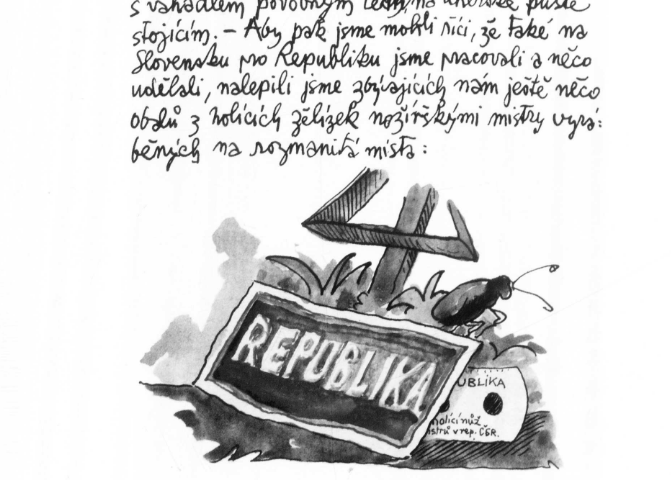 s váhadlem podobným tedy, na uherské pustě
stojícím. – Aby pak jsme mohli říci, že také na
Slovensku pro Republiku jsme pracovali a něco
udělali, nalepili jsme zbývajících nám ještě něco
obalů z holicích žélízek nožířskými mistry vyrá:
běných na rozmanitá místa:
REPUBLIKA
UBLIKA
holící nůž
istrů v rep. ČSR.